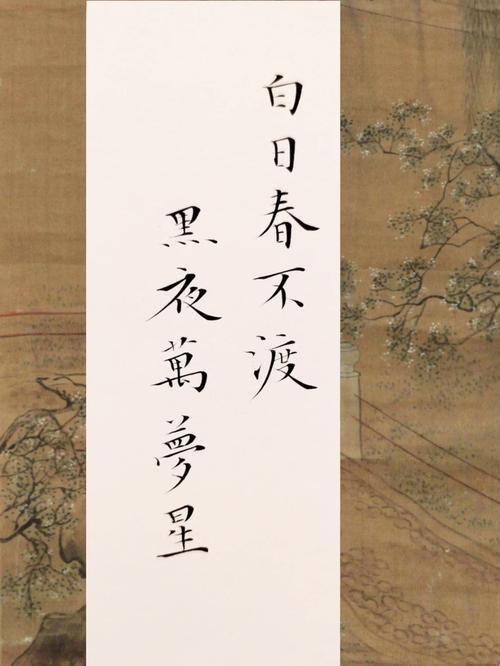 白日春不渡
黑夜萬夢星